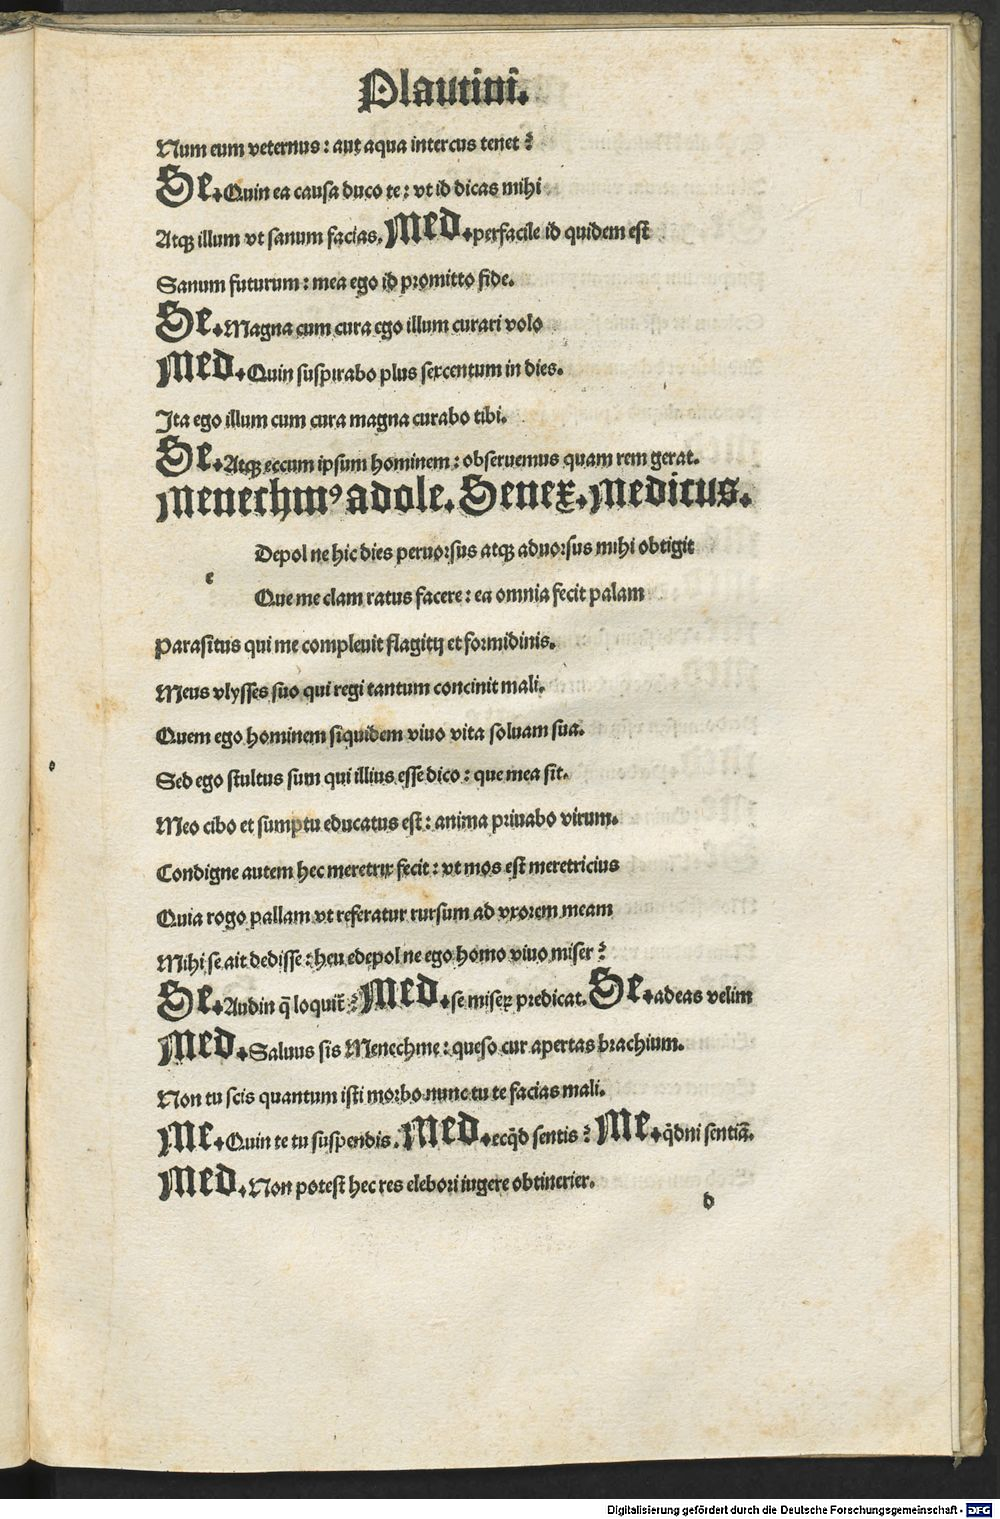 Plautini.
Num eum veternus : aut aqua intercus tenet ?
Se. Quin ea causa duco te : vt id dicas mihi
Atqꝫ illum vt sanum facias. Med. perfacile id quidem est
Sanum futurum : mea ego id promitto fide.
Se. Magna cum cura ego illum curari volo
Med. Quin suspirabo plus sexcentum in dies.
Ita ego illum cum cura magna curabo tibi.
Se. Atqꝫ eccum ipsum hominem : obseruemus quam rem gerat.
Menechmꝰ adole. Senex. Medicus.
Depol ne hic dies peruorsus atqꝫ aduorsus mihi obtigit
e
Que me clam ratus facere : ea omnia fecit palam
Parasitus qui me compleuit flagitij et formidinis.
Meus vlysses suo qui regi tantum concinit mali.
Quem ego hominem siquidem viuo vita soluam sua.
Sed ego stultus sum qui illius esse dico : que mea sit.
Meo cibo et sumptu educatus est : anima priuabo virum.
Condigne autem hec meretrix fecit : vt mos est meretricius
Quia rogo pallam vt referatur rursum ad vxorem meam
Mihi se ait dedisse : heu edepol ne ego homo viuo miser ?
Se. Audin q̄ loquit̄ ? Med. se miseꝝ predicat. Se. adeas velim
Med. Saluus sis Menechme : queso cur apertas brachium.
Non tu scis quantum isti morbo nunc tu te facias mali.
Me. Quin te tu suspendis. Med. ecq̄d sentis ? Me. q̄dni sentiā.
Med. Non potest hec res elebori iugere obtinerier.
d
Digitalisierung gefördert durch die Deutsche Forschungsgemeinschaft - DFG